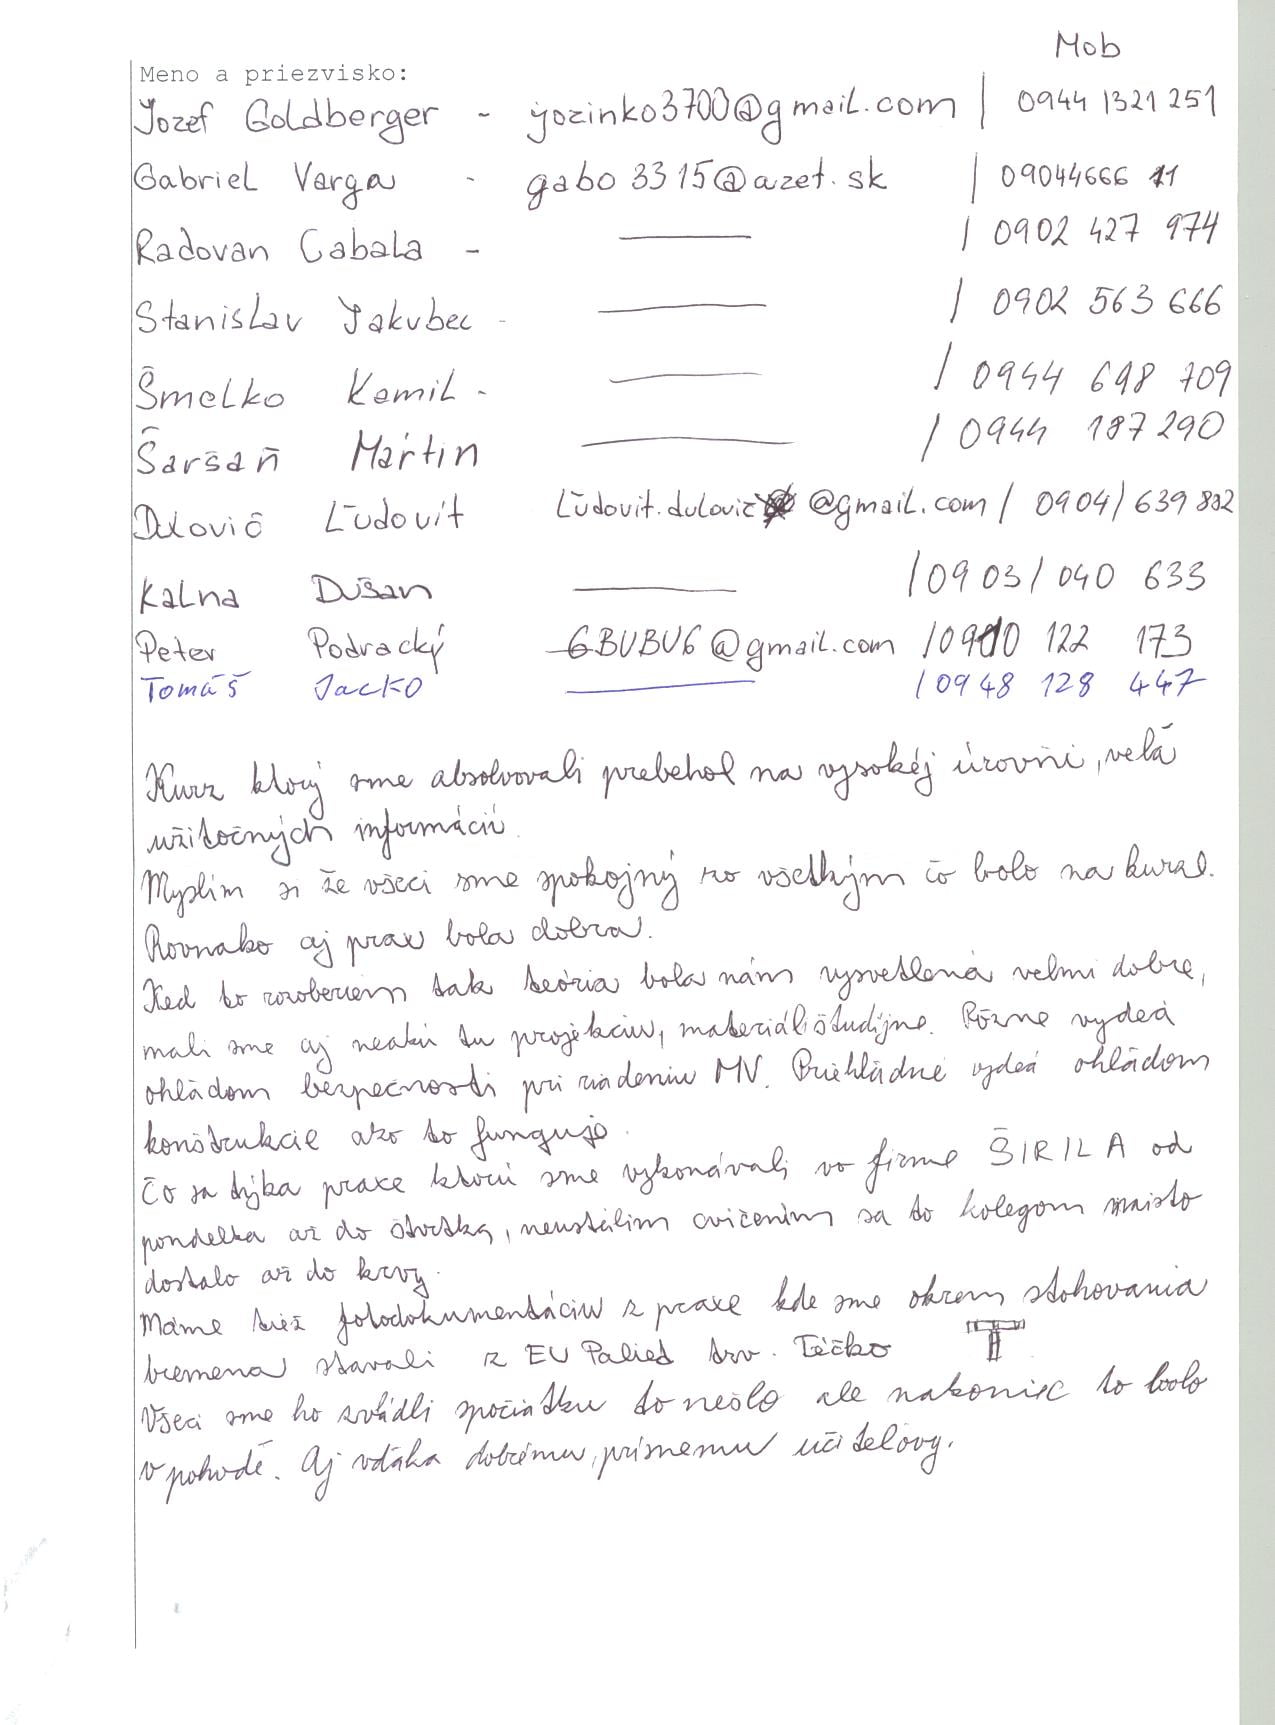 Mob
Meno a priezvisko:
Jozef Goldberger - jozinko3700@gmail.com | 0944 1321 251
Gabriel Varga - gabo3315@azet.sk | 09044666 11
Radovan Cabala - ——— | 0902 427 974
Stanislav Jakubec - ——— | 0902 563 666
Šmelko Kamil - ——— / 0944 698 709
Šaršaň Martin ——— / 0944 187 290
Dulovič Ľudovít Ľudovit.dulovič @gmail.com / 0904/639 802
Kalna Dušan ——— /0903/040 633
Peter Podracký GBUBU6@gmail.com /0910 122 173
Tomáš Jacko ——— /0948 128 447
Kurz ktorý sme absolvovali prebehol na vysokéj úrovňi, velā
užitočných informácií.
Myslím si že všeci sme spokojný zo všetkým čo bolo na kurze.
Rovnako aj prax bola dobra.
Ked to rozoberiem tak teória bola nám vysvetlená velmi dobre,
mali sme aj neakú tu projekciu, materiáli študijne. Rôzne vydeá
ohládom bezpečnosti pri riadeniu MV. Priehládné vydeá ohládom
konštrukcie ako to funguje.
Čo sa týka praxe ktorú sme vykonávali vo firme ŠIRILA od
pondelka až do štvrtka, neustálim cvičením sa to kolegom miisto
dostalo až do krvy.
Máme tiež fotodokumentáciu z praxe kde sme okrem stohovania
bremena stavali z EU Paliet tzv. Téčko
Všeci sme ho zvládli spočiatku to nešlo ale nakoniec to bolo
v pohodě. Aj vdáka dobrému, prísnemu učitelovy.